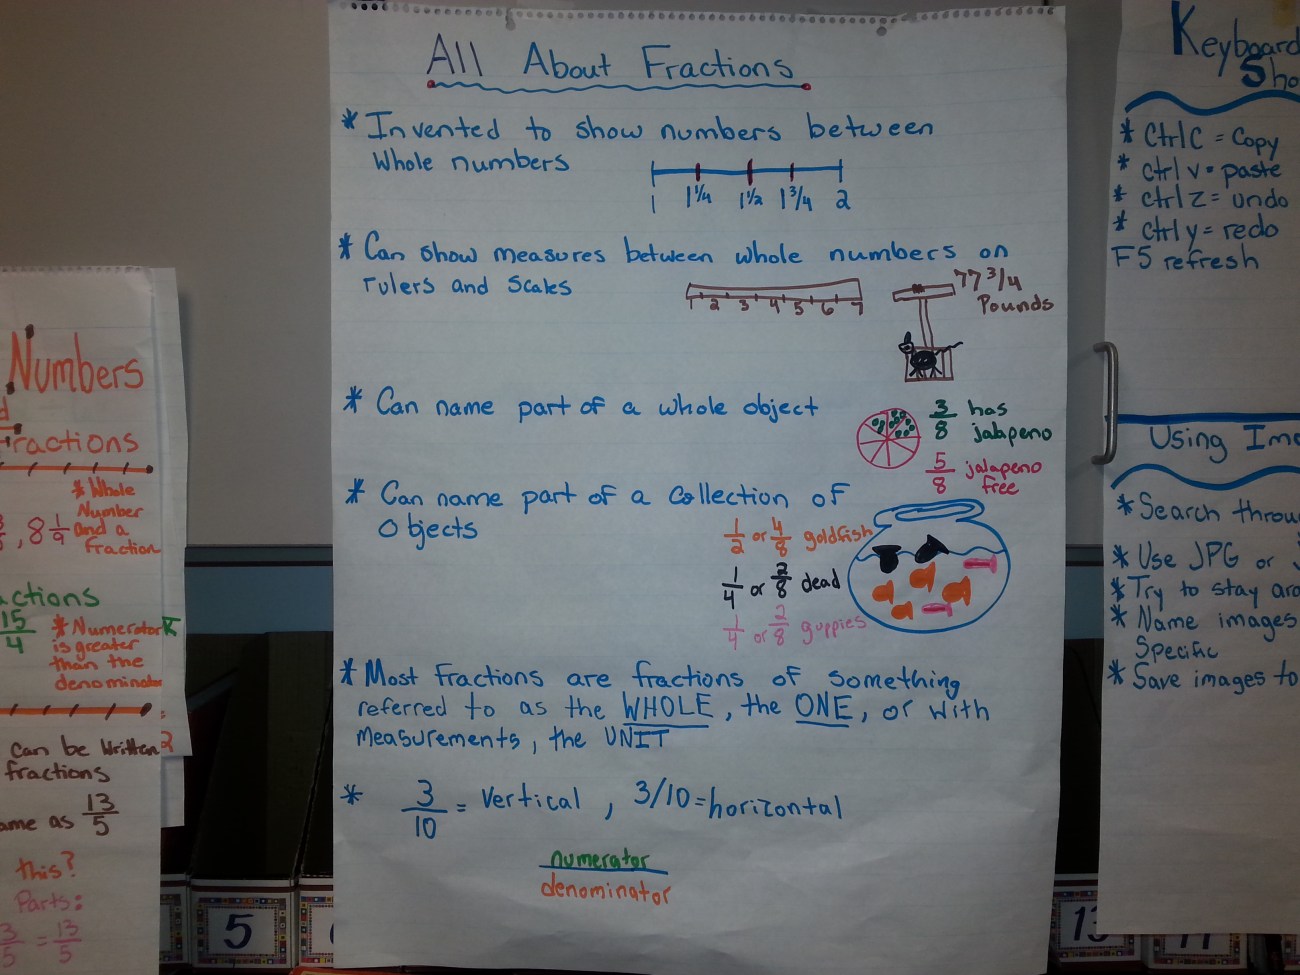 All About Fractions
* Invented to show numbers between
whole numbers
1 1 1/4 1 1/2 1 3/4 2
* Can show measures between whole numbers on
rulers and scales
1 2 3 4 5 6 7
77 3/4
Pounds
* Can name part of a whole object
3/8 has
jalapeno
5/8 jalapeno
free
* Can name part of a collection of
Objects
1/2 or 4/8 goldfish
1/4 or 2/8 dead
1/4 or 2/8 guppies
* Most fractions are fractions of something
referred to as the WHOLE, the ONE, or with
measurements, the UNIT
* 3/10 = vertical, 3/10 = horizontal
numerator
denominator
Numbers
Fractions
* Whole
Number
and a
fraction
, 8 1/9
15/4
* Numerator
is greater
than the
denominator
can be written
fractions
as 13/5
this?
Parts:
= 13/5
5
Keyboard
* Ctrl C = Copy
* ctrl v = paste
* ctrl z = undo
* ctrl y = redo
F5 refresh
Using
* Search
* Use JPG or
* Try to stay
* Name images
Specific
* Save images to
13